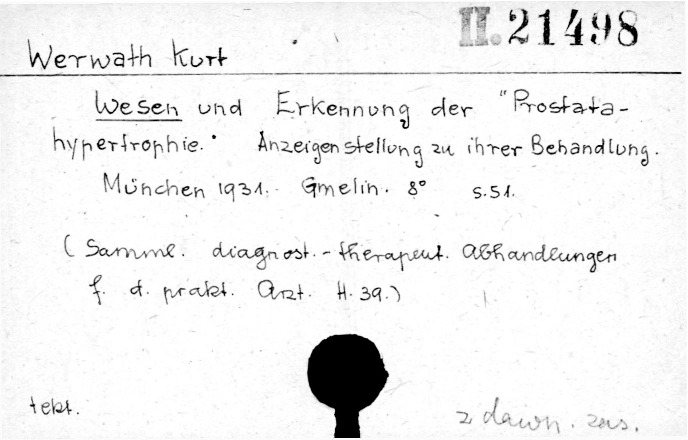 II. 21498
Werwath Kurt
Wesen und Erkennung der "Prostata-
hypertrophie." Anzeigenstellung zu ihrer Behandlung.
München 1931. Gmelin. 8° S.51.
(Samml. diagnost.-therapeut. Abhandlungen
f. d. prakt. Arzt. H. 39.)
tekt.
z dawn. zas.